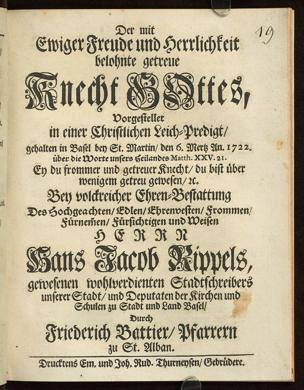 19
Der mit
Ewiger Freude und Herrlichkeit
belohnte getreue
Knecht GOttes,
Vorgestellet
in einer Christlichen Leich-Predigt/
gehalten in Basel bey St. Martin/ den 6. Mertz An. 1722.
über die Worte unsers Heilandes Matth. XXV. 21.
Ey du frommer und getreuer Knecht/ du bist über
wenigem getreu gewesen/ ꝛc.
Bey volckreicher Ehren-Bestattung
Des Hochgeachten/ Edlen/ Ehrenvesten/ Frommen/
Fürnemen/ Fürsichtigen und Weisen
HERRN
Hans Jacob Rippels,
gewesenen wohlverdienten Stadtschreibers
unserer Stadt/ und Deputaten der Kirchen und
Schulen zu Stadt und Land Basel/
Durch
Friederich Battier/ Pfarrern
zu St. Alban.
Drucktens Em. und Joh. Rud. Thurneysen/ Gebrüdere.